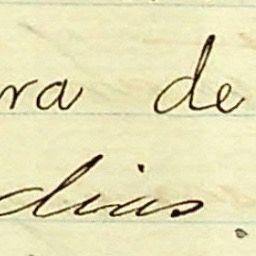 ra de
dias.